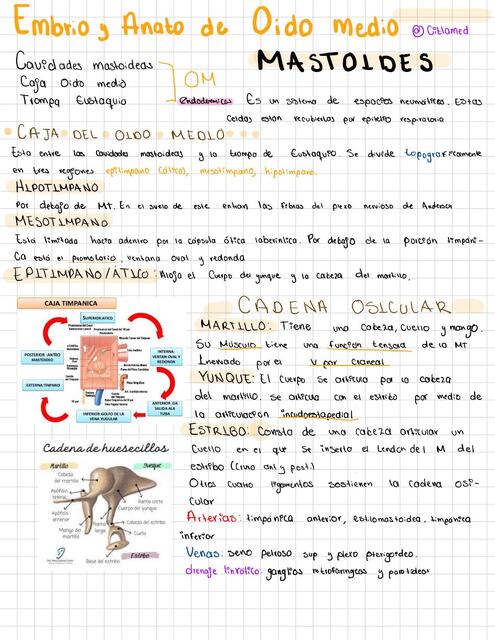 Embrio y Anato de Oido medio @Citlamed
MASTOIDES
Cavidades mastoideas
Caja Oido medio
Trompa Eustaquio
OM
endodermicos
Es un sistema de espacios neumáticos. Estas
Celdas están recubiertas por epitelio respiratorio
CAJA DEL OIDO MEDIO
Esta entre las cavidades mastoideas y la trompa de Eustaquio. Se divide topograficamente
en tres regiones epitimpano (ático), mesotimpano, hipotimpano.
HIPOTIMPANO
Por debajo de MT. En el suelo de este entran las fibras del plexo nervioso de
MESOTIMPANO
Está limitada hacia adentro por la cápsula ótica laberintica. Por debajo de la porción timpáni-
ca está el promotorio, ventana oval y redonda
EPITIMPANO/ÁTICO: Aloja el Cuerpo de yunque y la cabeza del martillo.
CAJA TIMPANICA
SUPERIOR:ATICO
POSTERIOR :ANTRO MASTOIDEO
INTERNA: VENTAN OVAL Y REDONDA
EXTERNA:TIMPANO
ANTERIOR :DA SALIDA ALA TUBA
INFERIOR:GOLFO DE LA VENA YUGULAR
CADENA OSICULAR
MARTILLO: Tiene una cabeza, cuello y mango.
Su Músculo tiene una función tensora de la MT
Inervado por el V par craneal
YUNQUE: El Cuerpo se articula por la cabeza
del martillo. se articula con el estribo por medio de
la articulación incudoestapedial
ESTRIBO: Consta de una cabeza articular un
Cuello en el que se inserta el tendon del M del
estribo (crura ant y post.)
Otros cuatro ligamentos sostienen la cadena osi-
cular
Arterias: timpánica anterior, estilomastoidea, timpánica
inferior
Venas: seno petroso sup y plexo pterigoideo.
drenaje linfático: ganglios retrofaringeos y parotideos
Cadena de huesecillos
Martillo
Yunque
Cabeza del martillo
Apófisis lateral
Apófisis anterior
Mango del martillo
Rama corta
Cuerpo del yunque
Rama larga
Cabeza del estribo
Cuello
Base del estribo
Estribo